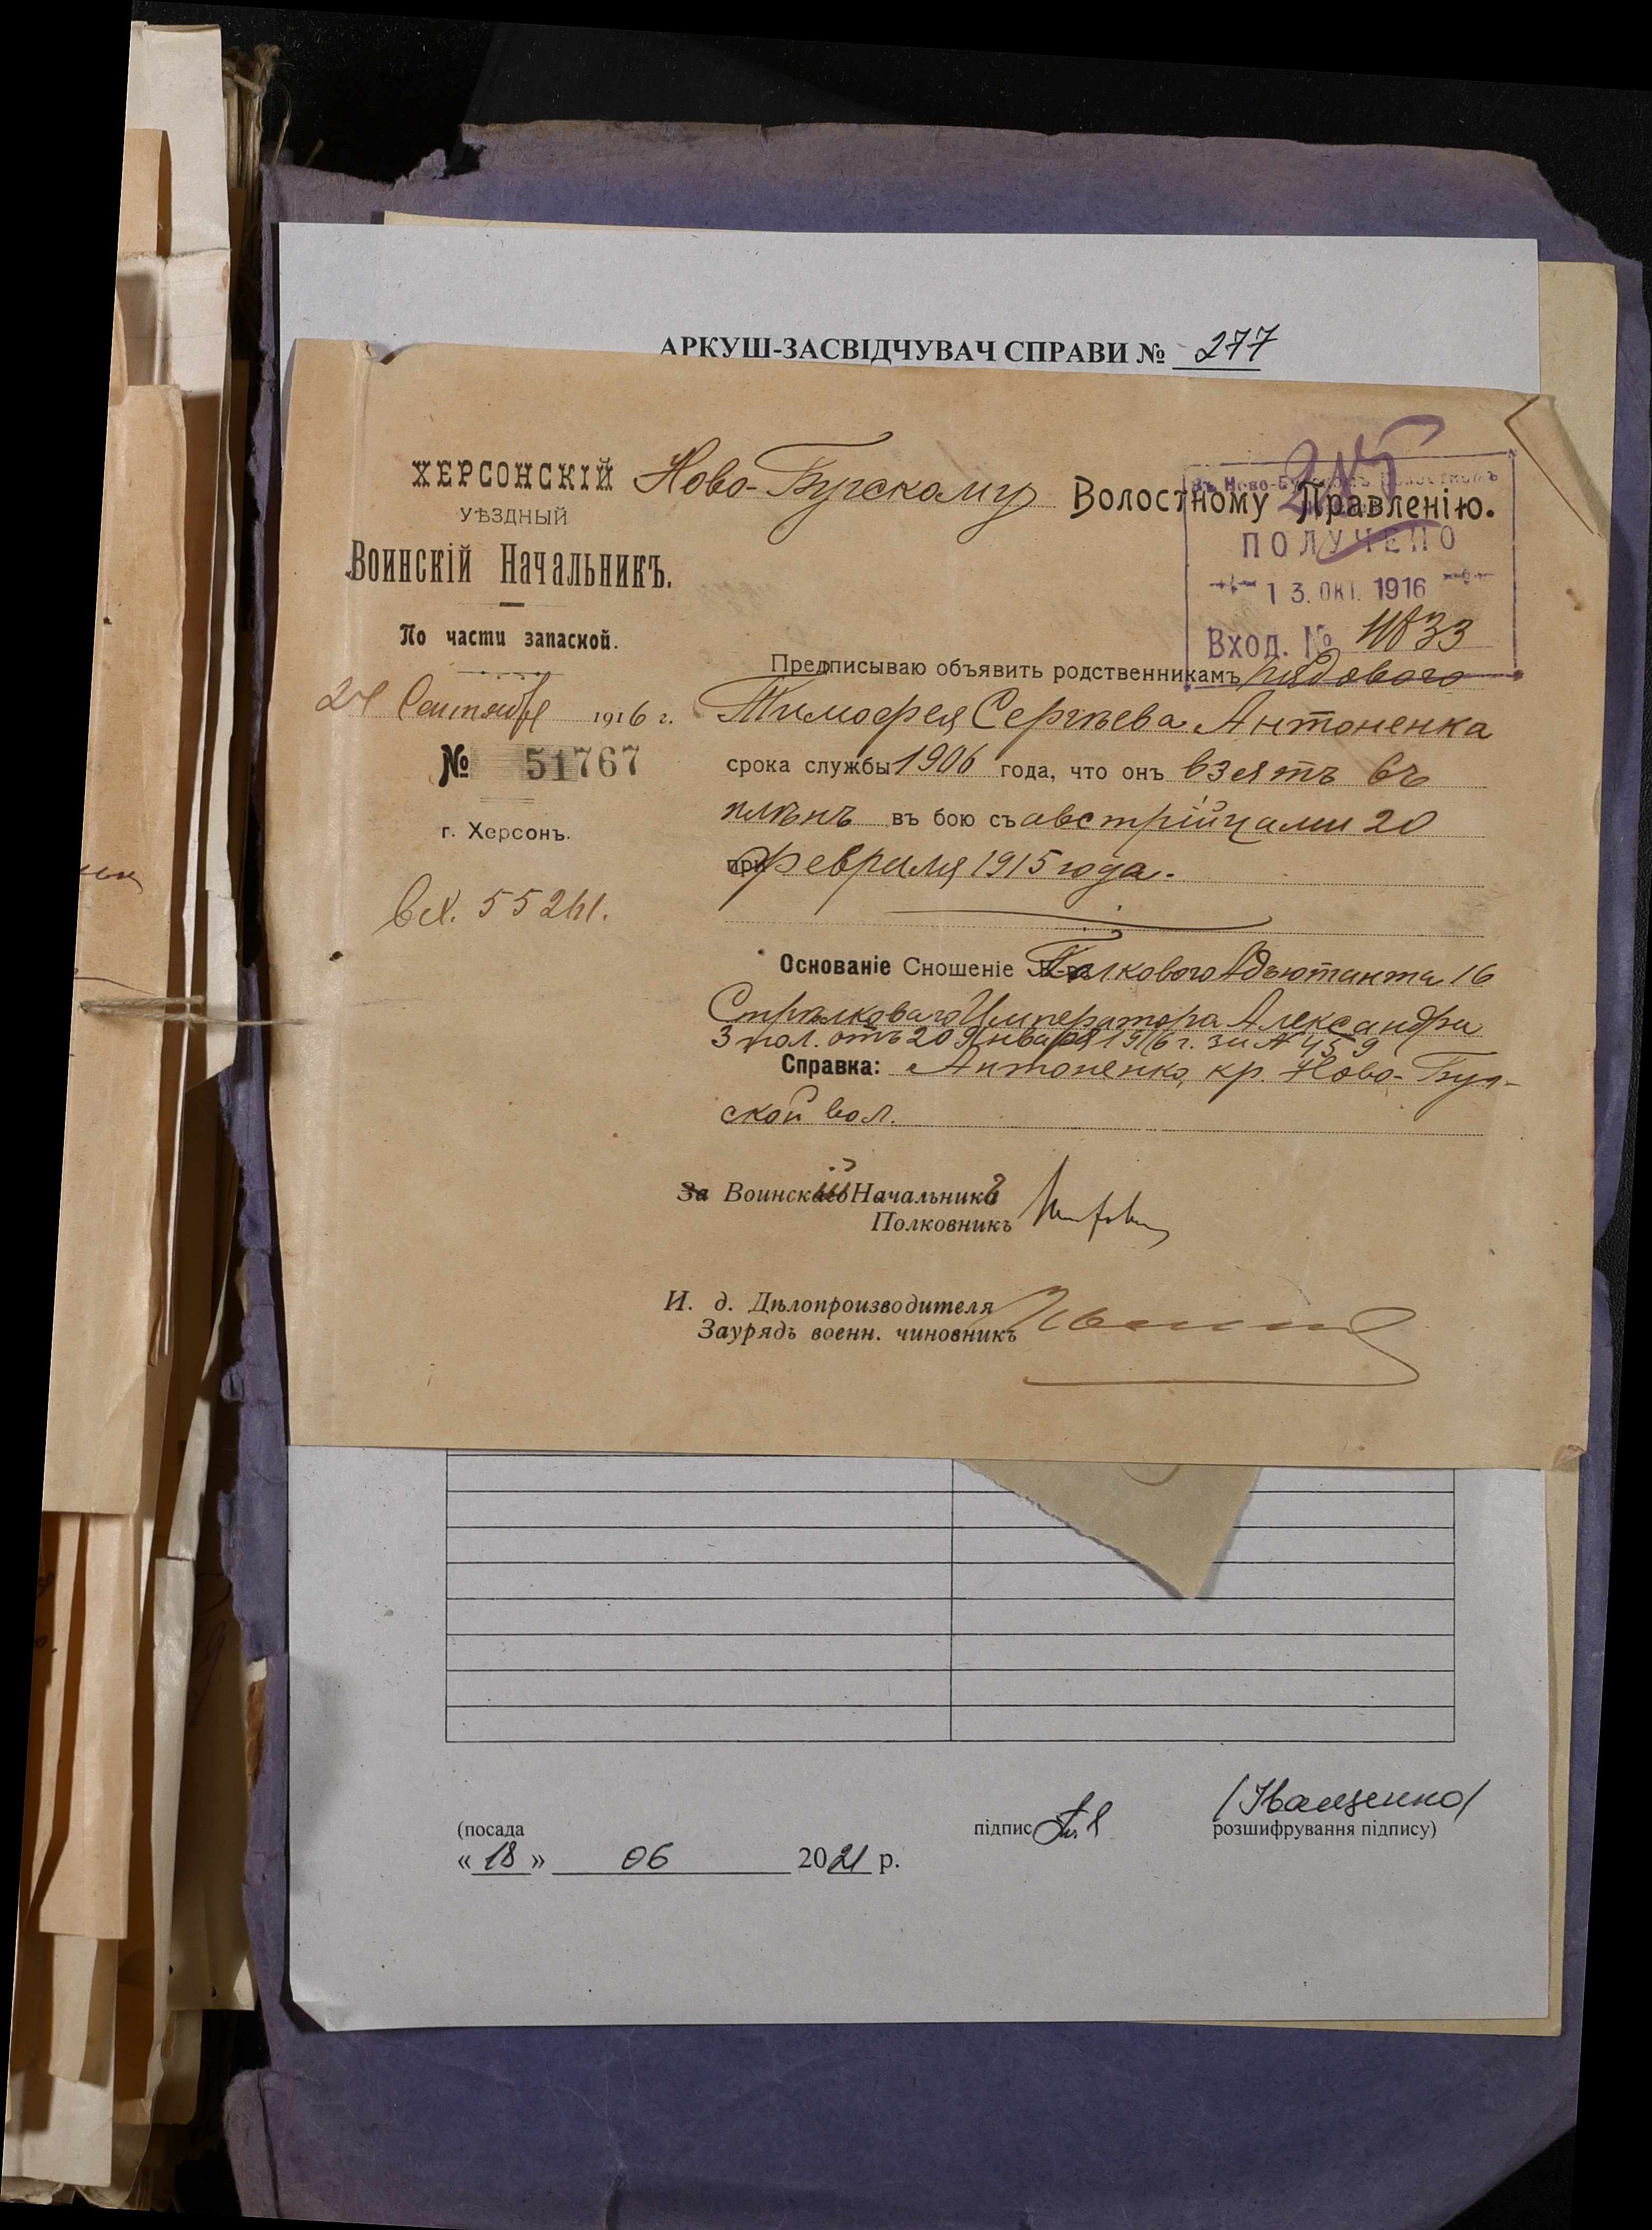 АРКУШ-ЗАСВІДЧУВАЧ СПРАВИ № 277
ХЕРСОНСКІЙ
УѢЗДНЫЙ
ВОИНСКІЙ НАЧАЛЬНИКЪ.
По части запасной.
24 Сентября 1916 г.
№ 51767
г. Херсонъ.
Вх. 55241.
Ново-Бугскому Волостному Правленію.
215
ПОЛУЧЕНО
13. ОКТ. 1916
Вход. № 4833
Предписываю объявить родственникамъ рядового
Тимофея Сергѣева Антоненка
срока службы 1906 года, что онъ взятъ въ
плѣнъ въ бою съ австрійцами 20
при февраля 1915 года.
Основаніе Сношеніе Полкового Адъютанта 16
Стрѣлковаго Императора Александра
3 пол. отъ 20 Января 1916 г. за № 459
Справка: Антоненко, кр. Ново-Буг-
ской вол.
За Воинскій Начальникъ
Полковникъ
И. д. Дѣлопроизводителя
Заурядъ военн. чиновникъ
(посада
підпис
(Іващенко)
розшифрування підпису)
« 18 » 06 2021 р.